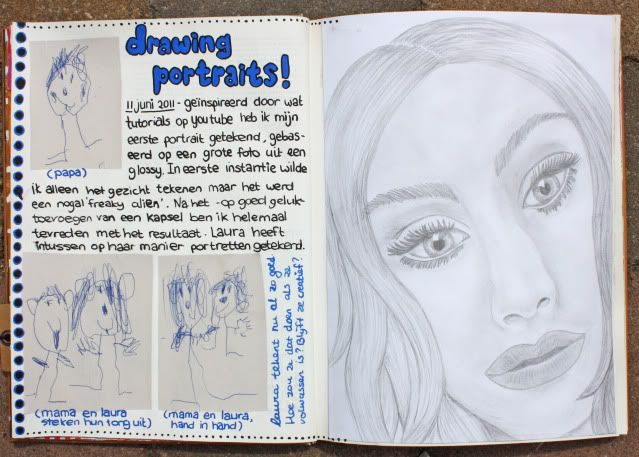 drawing
portraits!
11 juni 2011 - geïnspireerd door wat
tutorials op youtube heb ik mijn
eerste portrait getekend, gebas-
eerd op een grote foto uit een
glossy. In eerste instantie wilde
ik alleen het gezicht tekenen maar het werd
een nogal 'freaky alien'. Na het -op goed geluk-
toevoegen van een kapsel ben ik helemaal
tevreden met het resultaat. Laura heeft
intussen op haar manier portretten getekend.
(papa)
(mama en laura
steken hun tong uit)
(mama en laura,
hand in hand)
laura tekent nu al zo goed
Hoe zou ze dat doen als ze
volwassen is? Blijft ze creatief?